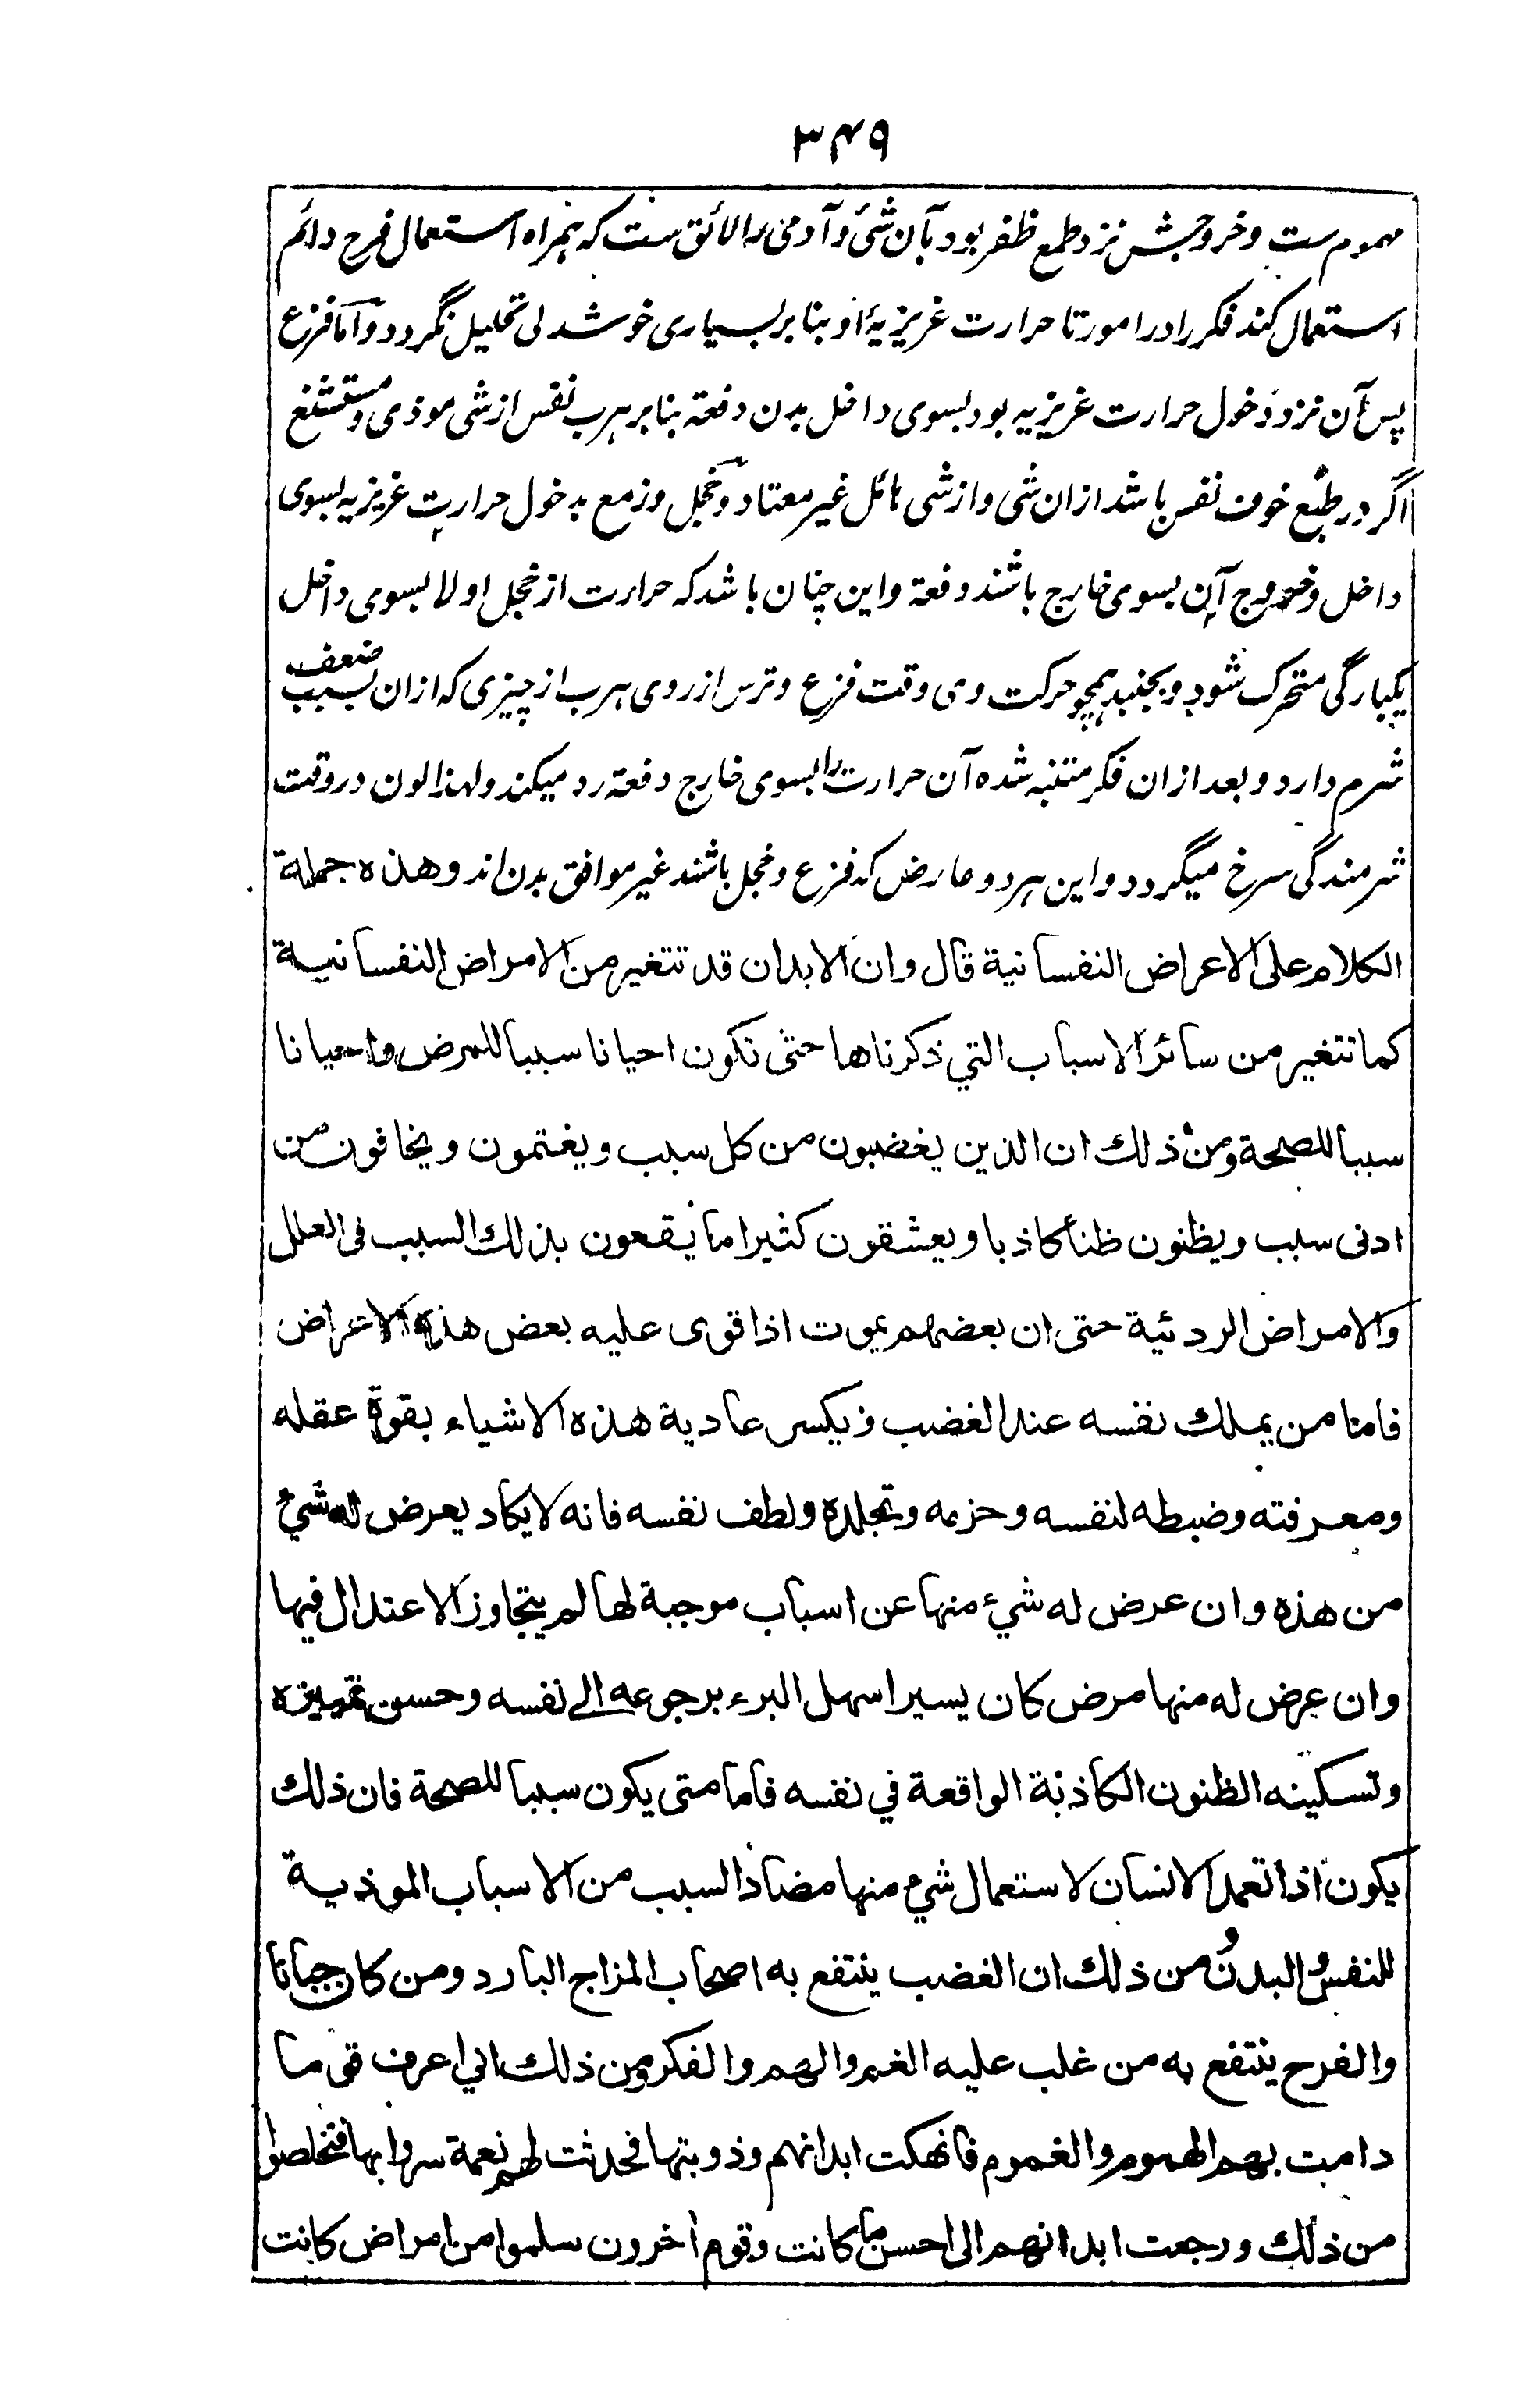 ۳۴۹
مهموم ست و خروجش نزد طمع ظفر بود بآن شئ و آدمی را لائق ست که همراه استعمال فرح دائم
استعمال کند فکر را در امور تا حرارت غریزیهٔ او بنا بر بسیاری خوشدلی تحلیل نگردد و اما فزع
پس آن نزد دخول حرارت غریزیه بود بسوی داخل بدن دفعة بنا بر هرب نفس از شی موذی و مستشنع
اگر در طبع خوف نفس باشد ازان شی و از شی هائل غیر معتاد و خجل و زمع بدخول حرارت غریزیه بسوی
داخل و خروج آن بسوی خارج باشند دفعة و این چنان باشد که حرارت از خجل اولا بسوی داخل
یکبارگی متحرک شود و بجنبد همچو حرکت وی وقت فزع و ترس از روی هرب از چیزی که ازان بسبب ضعف
شرم دارد و بعد ازان فکر متنبه شده آن حرارت را بسوی خارج دفعة رد میکند و لهذا لون در وقت
شرمندگی سرخ میگردد و این هر دو عارض که فزع و خجل باشند غیر موافق بدن اند وهذه جملة
الكلام على الاعراض النفسانية قال وان الابدان قد تتغير من الامراض النفسانية
كما تتغير من سائر الاسباب التي ذكرناها حتى تكون احيانا سببا للمرض واحيانا
سببا للصحة ومن ذلك ان الذين يغضبون من كل سبب ويغتمون ويخافون من
ادنى سبب ويظنون ظنا كاذبا ويعشقون كثيرا ما يقعون بذلك السبب فى العلل
والامراض الردئية حتى ان بعضهم يموت اذا قوى عليه بعض هذه الاعراض
فاما من يملك نفسه عند الغضب ويكسر عادية هذه الاشياء بقوة عقله
ومعرفته وضبطه لنفسه وحزمه وتجلده ولطف نفسه فانه لا يكاد يعرض له شئ
من هذه وان عرض له شئ منها عن اسباب موجبة لها لم يتجاوز الاعتدال فيها
وان عرض له منها مرض كان يسيرا سهل البرء برجوعه الى نفسه وحسن تميزه
وتسكينه الظنون الكاذبة الواقعة في نفسه فاما متى يكون سببا للصحة فان ذلك
يكون اذا تعمد الانسان لاستعمال شئ منها مضادا لسبب من الاسباب الموذية
للنفس والبدن ومن ذلك ان الغضب ينتفع به اصحاب المزاج البارد ومن كان جبانا
والفرح ينتفع به من غلب عليه الغم والهم والفكر ومن ذلك اني اعرف قوما
دامت بهم الهموم والغموم فانهكت ابدانهم وذوبتها فحدثت لهم نعمة سروا بها فتخلصوا
من ذلك ورجعت ابدانهم الى احسن ما كانت وقوم اخرون سلموا من امراض كانت